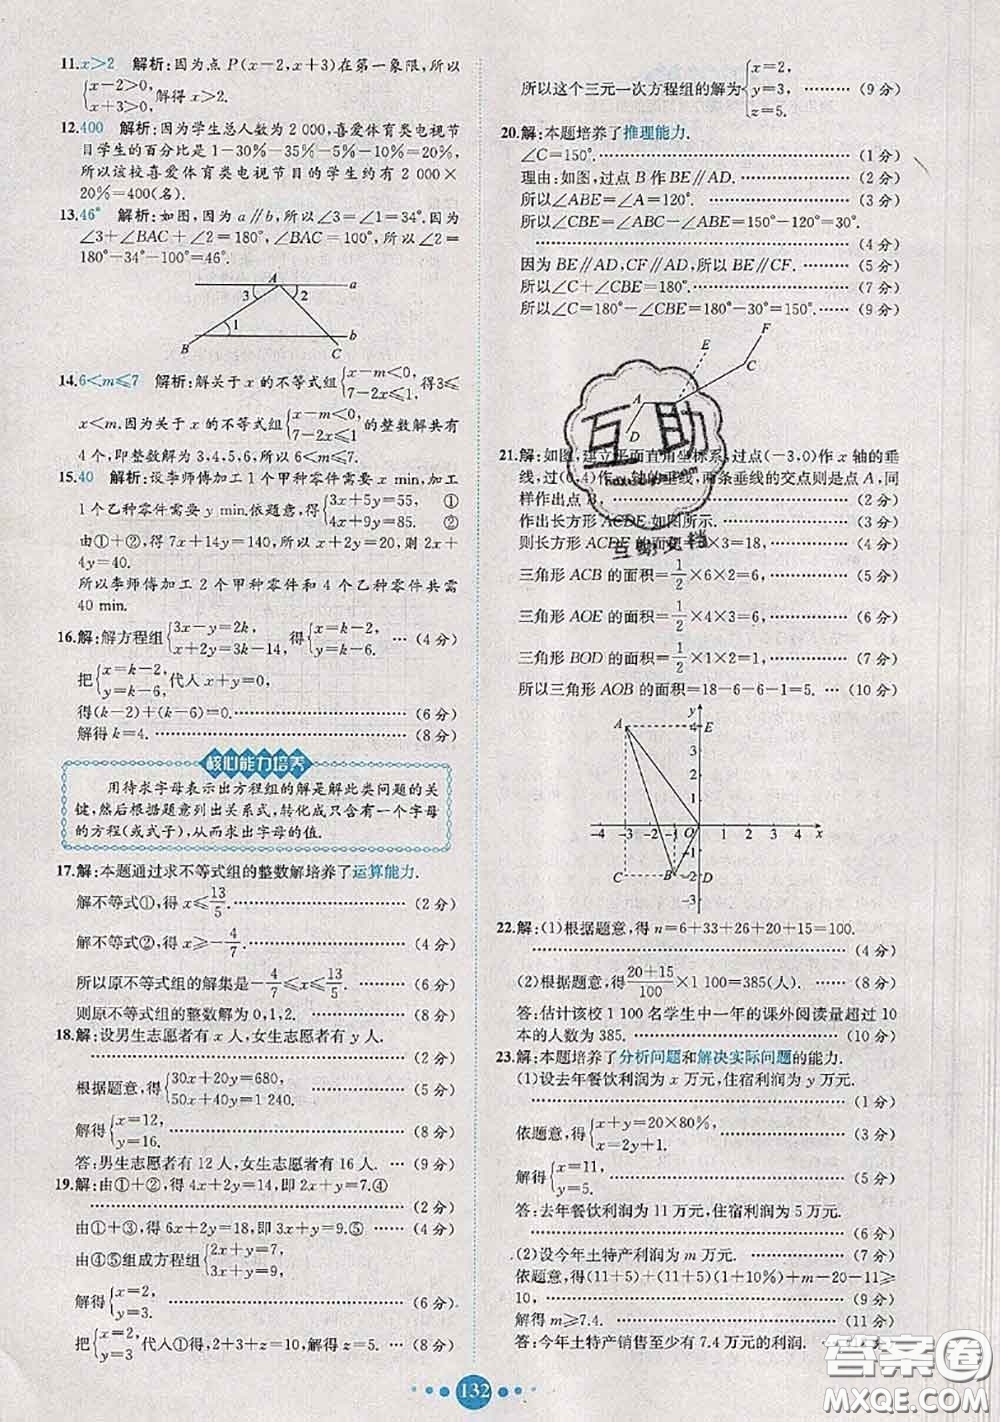 11.x>2 解析:因为点 P(x-2,x+3)在第一象限,所以
{x-2>0, x+3>0, 解得 x>2.
12.400 解析:因为学生总人数为 2 000,喜爱体育类电视节
目学生的百分比是 1-30%-35%-5%-10%=20%,
所以该校喜爱体育类电视节目的学生约有 2 000×
20%=400(名).
13.46° 解析:如图,因为 a∥b,所以∠3=∠1=34°.因为
∠3+∠BAC+∠2=180°,∠BAC=100°,所以∠2=
180°-34°-100°=46°.
A a
3 2
1 b
B C
14.6<m≤7 解析:解关于 x 的不等式组{x-m<0, 7-2x≤1, 得3≤
x<m.因为关于 x 的不等式组{x-m<0, 7-2x≤1 的整数解共有
4个,即整数解为 3,4,5,6,所以 6<m≤7.
15.40 解析:设李师傅加工 1 个甲种零件需要 x min,加工
1 个乙种零件需要 y min.依题意,得{3x+5y=55, ① 4x+9y=85. ②
由①+②,得 7x+14y=140,所以 x+2y=20,则 2x+
4y=40.
所以李师傅加工 2 个甲种零件和 4 个乙种零件共需
40 min.
16.解:解方程组{3x-y=2k, x+2y=3k-14, 得{x=k-2, y=k-6. … (4 分)
把{x=k-2, y=k-6 代人 x+y=0,
得(k-2)+(k-6)=0. …… (6 分)
解得 k=4. …… (8 分)
核心能力培养
用待求字母表示出方程组的解是解此类问题的关
键,然后根据题意列出关系式,转化成只含有一个字母
的方程(或式子),从而求出字母的值.
17.解:本题通过求不等式组的整数解培养了运算能力.
解不等式①,得 x≤13/5. …… (2 分)
解不等式②,得 x≥-4/7. …… (4 分)
所以原不等式组的解集是-4/7≤x≤13/5. …… (6 分)
则原不等式组的整数解为 0,1,2. …… (8 分)
18.解:设男生志愿者有 x 人,女生志愿者有 y 人.
…… (2 分)
根据题意,得{30x+20y=680, 50x+40y=1 240. …… (5 分)
解得{x=12, y=16. …… (8 分)
答:男生志愿者有 12 人,女生志愿者有 16 人. … (9 分)
19.解:由①+②,得 4x+2y=14,即 2x+y=7.④
…… (2 分)
由①+③,得 6x+2y=18,即 3x+y=9.⑤ …… (4 分)
由④⑤组成方程组{2x+y=7, 3x+y=9.
解得{x=2, y=3. …… (6 分)
把{x=2, y=3 代人①得,2+3+z=10,解得 z=5. …… (8 分)
所以这个三元一次方程组的解为{x=2, y=3, z=5. …… (9 分)
20.解:本题培养了推理能力.
∠C=150°. …… (1 分)
理由:如图,过点 B 作 BE∥AD. …… (2 分)
所以∠ABE=∠A=120°. …… (3 分)
所以∠CBE=∠ABC-∠ABE=150°-120°=30°.
…… (4 分)
因为 BE∥AD,CF∥AD,所以 BE∥CF. …… (5 分)
所以∠C+∠CBE=180°. …… (7 分)
所以∠C=180°-∠CBE=180°-30°=150°. …… (9 分)
F
E
C
A
D
互助
互助文档
21.解:如图,建立平面直角坐标系,过点(-3,0)作 x 轴的垂
线,过(0,4)作 轴的垂线,两条垂线的交点则是点 A,同
样作出点 B. …… (2 分)
作出长方形 ACDE 如图所示.
则长方形 ACDE 的面积= ×3=18, …… (4 分)
三角形 ACB 的面积=1/2×6×2=6, …… (5 分)
三角形 AOE 的面积=1/2×4×3=6, …… (6 分)
三角形 BOD 的面积=1/2×1×2=1, …… (7 分)
所以三角形 AOB 的面积=18-6-6-1=5. … (10 分)
y
A 4 E
3
2
1
-4 -3 -2 -1 O 1 2 3 4 x
-1
C B -2 D
-3
22.解:(1)根据题意,得 n=6+33+26+20+15=100.
…… (4 分)
(2)根据题意,得(20+15)/100×1 100=385(人). …… (8 分)
答:估计该校 1 100 名学生中一年的课外阅读量超过 10
本的人数为 385. …… (10 分)
23.解:本题培养了分析问题和解决实际问题的能力.
(1)设去年餐饮利润为 x 万元,住宿利润为 y 万元.
…… (1 分)
依题意,得{x+y=20×80%, x=2y+1. …… (3 分)
解得{x=11, y=5.
答:去年餐饮利润为 11 万元,住宿利润为 5 万元.
…… (6 分)
(2)设今年土特产利润为 m 万元. …… (7 分)
依题意,得(11+5)+(11+5)(1+10%)+m-20-11≥
10, …… (9 分)
解得 m≥7.4. …… (11 分)
答:今年土特产销售至少有 7.4 万元的利润.
132
答案圈
MXQE.COM